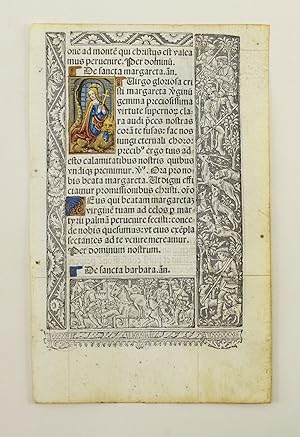 one ad montē qui christus est valea
mus peruenire. Per dominū.
De sancta margareta. añ.
Virgo gloriosa cri
sti margareta v̄ginū
gemma preciosissima
virtute supernor̄ cla
ra audi p̄ces nostras
corā te fusas: fac nos
iungi eternali choro:
precib⁹ ergo tuis ad
esto calamitatibus nostris quibus
vndiq; premimur. V⁹. Ora pro no
bis beata margareta. Ut digni effi
ciamur promissionibus christi. orō
Eus qui beatam margaretaȝ
virginē tuam ad celos p̄ mar
tyrii palmā peruenire fecisti: conce
de nobis quesumus: vt eius exēpla
sectantes ad te venire mereamur.
Per dominum nostrum.
De sancta barbara. añ.